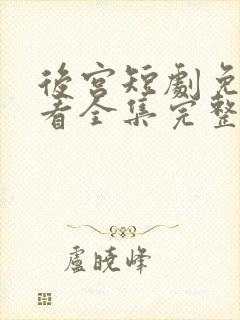 後宮短劇免
看全集完整
盧曉峰